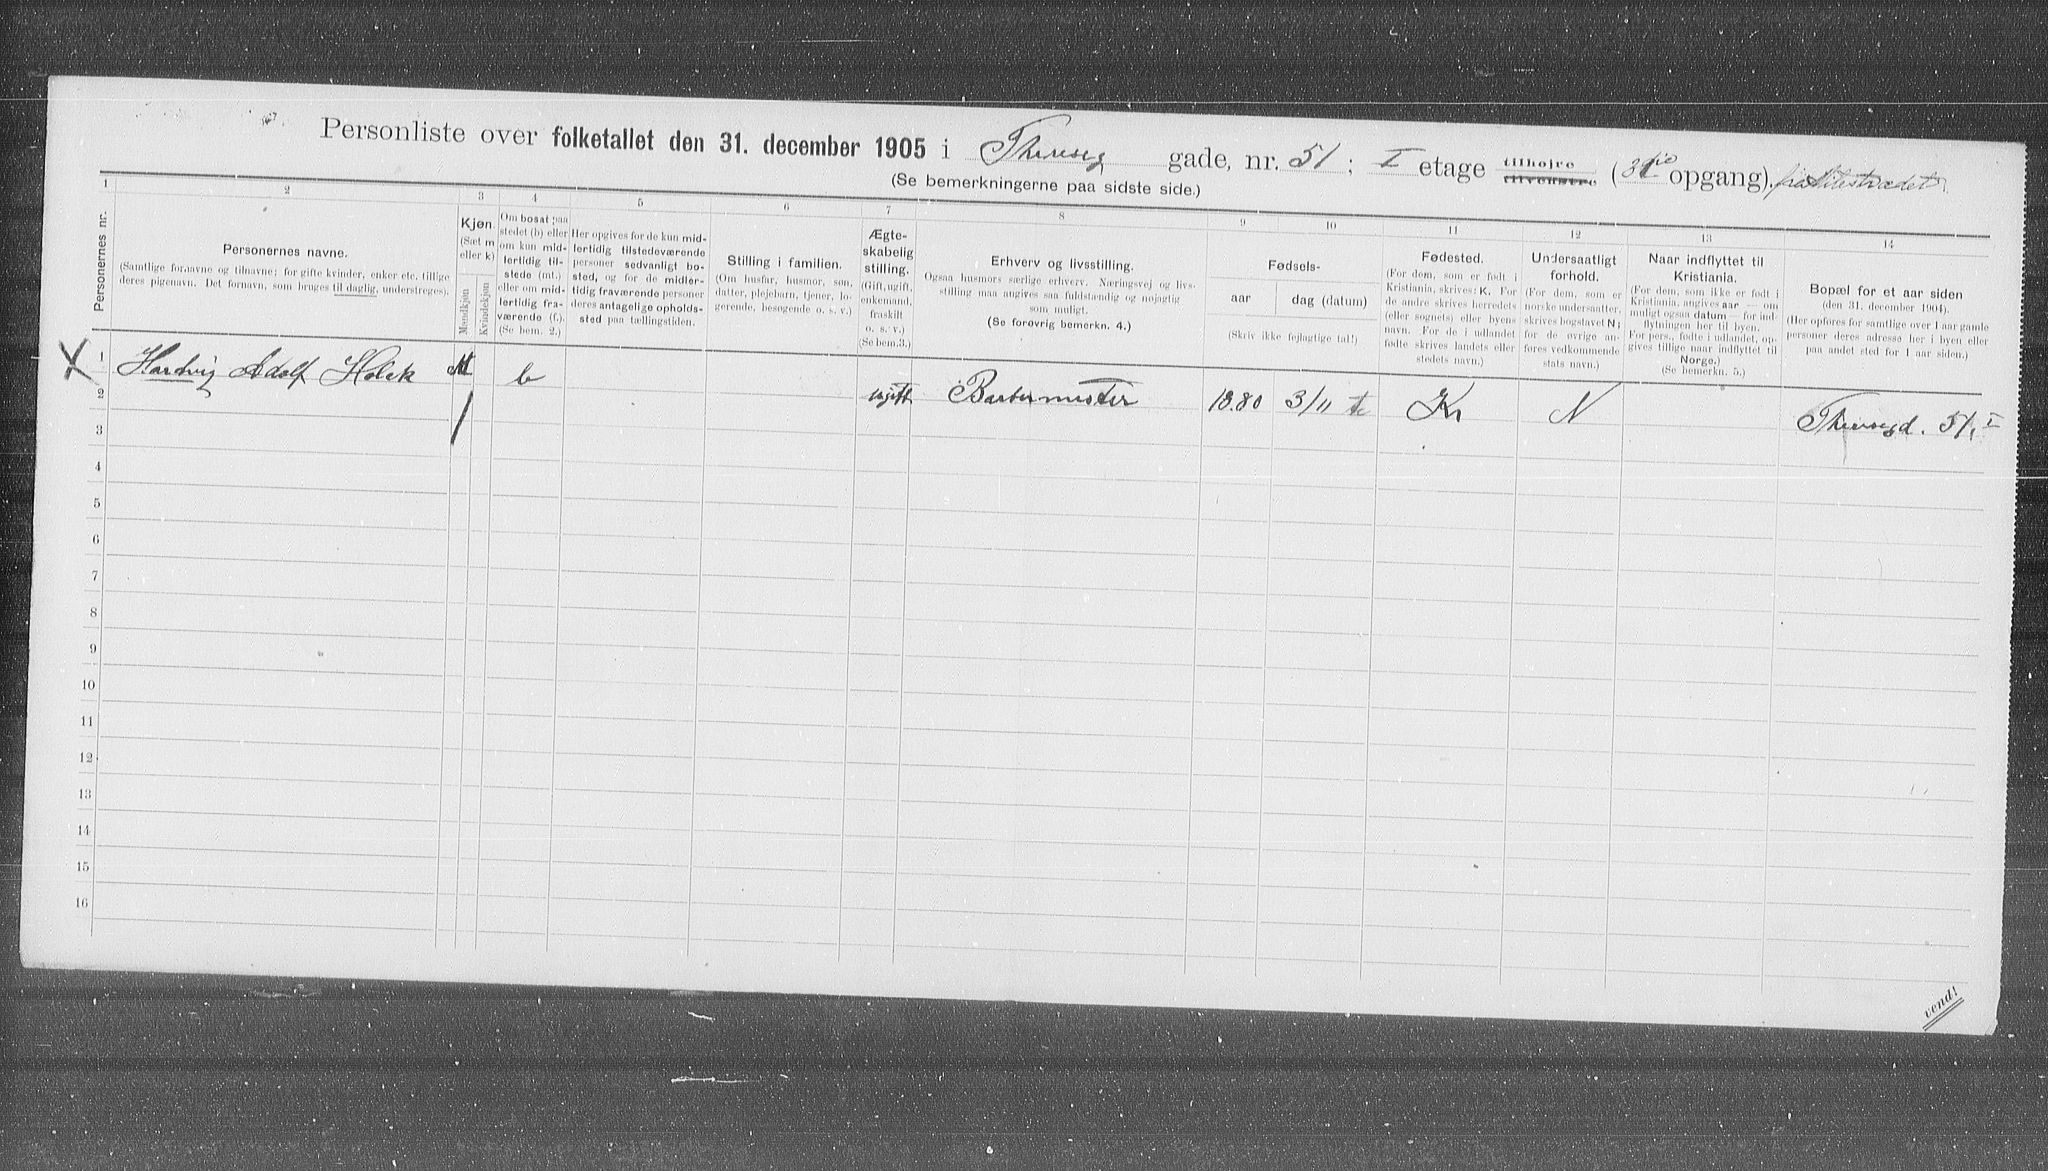 Personliste over folketallet den 31. december 1905 i Thereseg gade, nr. 51 ; I etage tilhøire tilvenstre (3die opgang). fra
(Se bemerkningerne paa sidste side.)
1 2 3 4 5 6 7 8 9 10 11 12 13 14
Personernes nr.
Personernes navne.
(Samtlige fornavne og tilnavne; for gifte kvinder, enker etc. tillige
deres pigenavn. Det fornavn, som bruges til daglig, understreges).
Kjøn.
(Sæt m
eller k)
Mandkjøn
Kvindekjøn
Om bosat paa
stedet (b) eller
om kun mid-
lertidig til-
stede (mt.)
eller om mid-
lertidig fra-
værende (f.).
(Se bem. 2.)
Her opgives for de kun mid-
lertidig tilstedeværende
personer sedvanligt bo-
sted, og for de midler-
tidig fraværende personer
deres antagelige opholds-
sted paa tællingstiden.
Stilling i familien.
(Om husfar, husmor, søn,
datter, plejebarn, tjener, lo-
gerende, besøgende o. s. v.)
Ægte-
skabelig
stilling.
(Gift, ugift,
enkemand,
fraskilt
o. s. v.)
(Se bem.3.)
Erhverv og livsstilling.
Ogsaa husmors særlige erhverv. Næringsvej og livs-
stilling maa angives saa fuldstændig og nøjagtig
som muligt.
(Se forøvrig bemerkn. 4.)
Fødsels-
aar
dag (datum)
(Skriv ikke fejlagtige tal!)
Fødested.
(For dem, som er født i
Kristiania, skrives: K. For
de andre skrives herredets
(eller sognets) eller byens
navn. For de i udlandet
fødte skrives landets eller
stedets navn.)
Undersaatligt
forhold.
(For dem, som er
norske undersaatter,
skrives bogstavet N;
for de øvrige an-
føres vedkommende
stats navn.)
Naar indflyttet til
Kristiania.
(For dem, som ikke er født i
Kristiania, angives aar — om
muligt ogsaa datum — for ind-
flytningen her til byen.
For pers., fødte i udlandet, op-
gives tillige naar indflyttet til
Norge.)
(Se bemerkn. 5.)
Bopæl for et aar siden
(den 31. december 1904).
(Her opføres for samtlige over 1 aar gamle
personer deres adresse her i byen eller
paa andet sted for 1 aar siden.)
X 1 Hardvig Adolf Holck M b ugift Barbermester 1880 3/11 Kr N Theresegd. 51, I
2
3
4
5
6
7
8
9
10
11
12
13
14
15
16
vend!